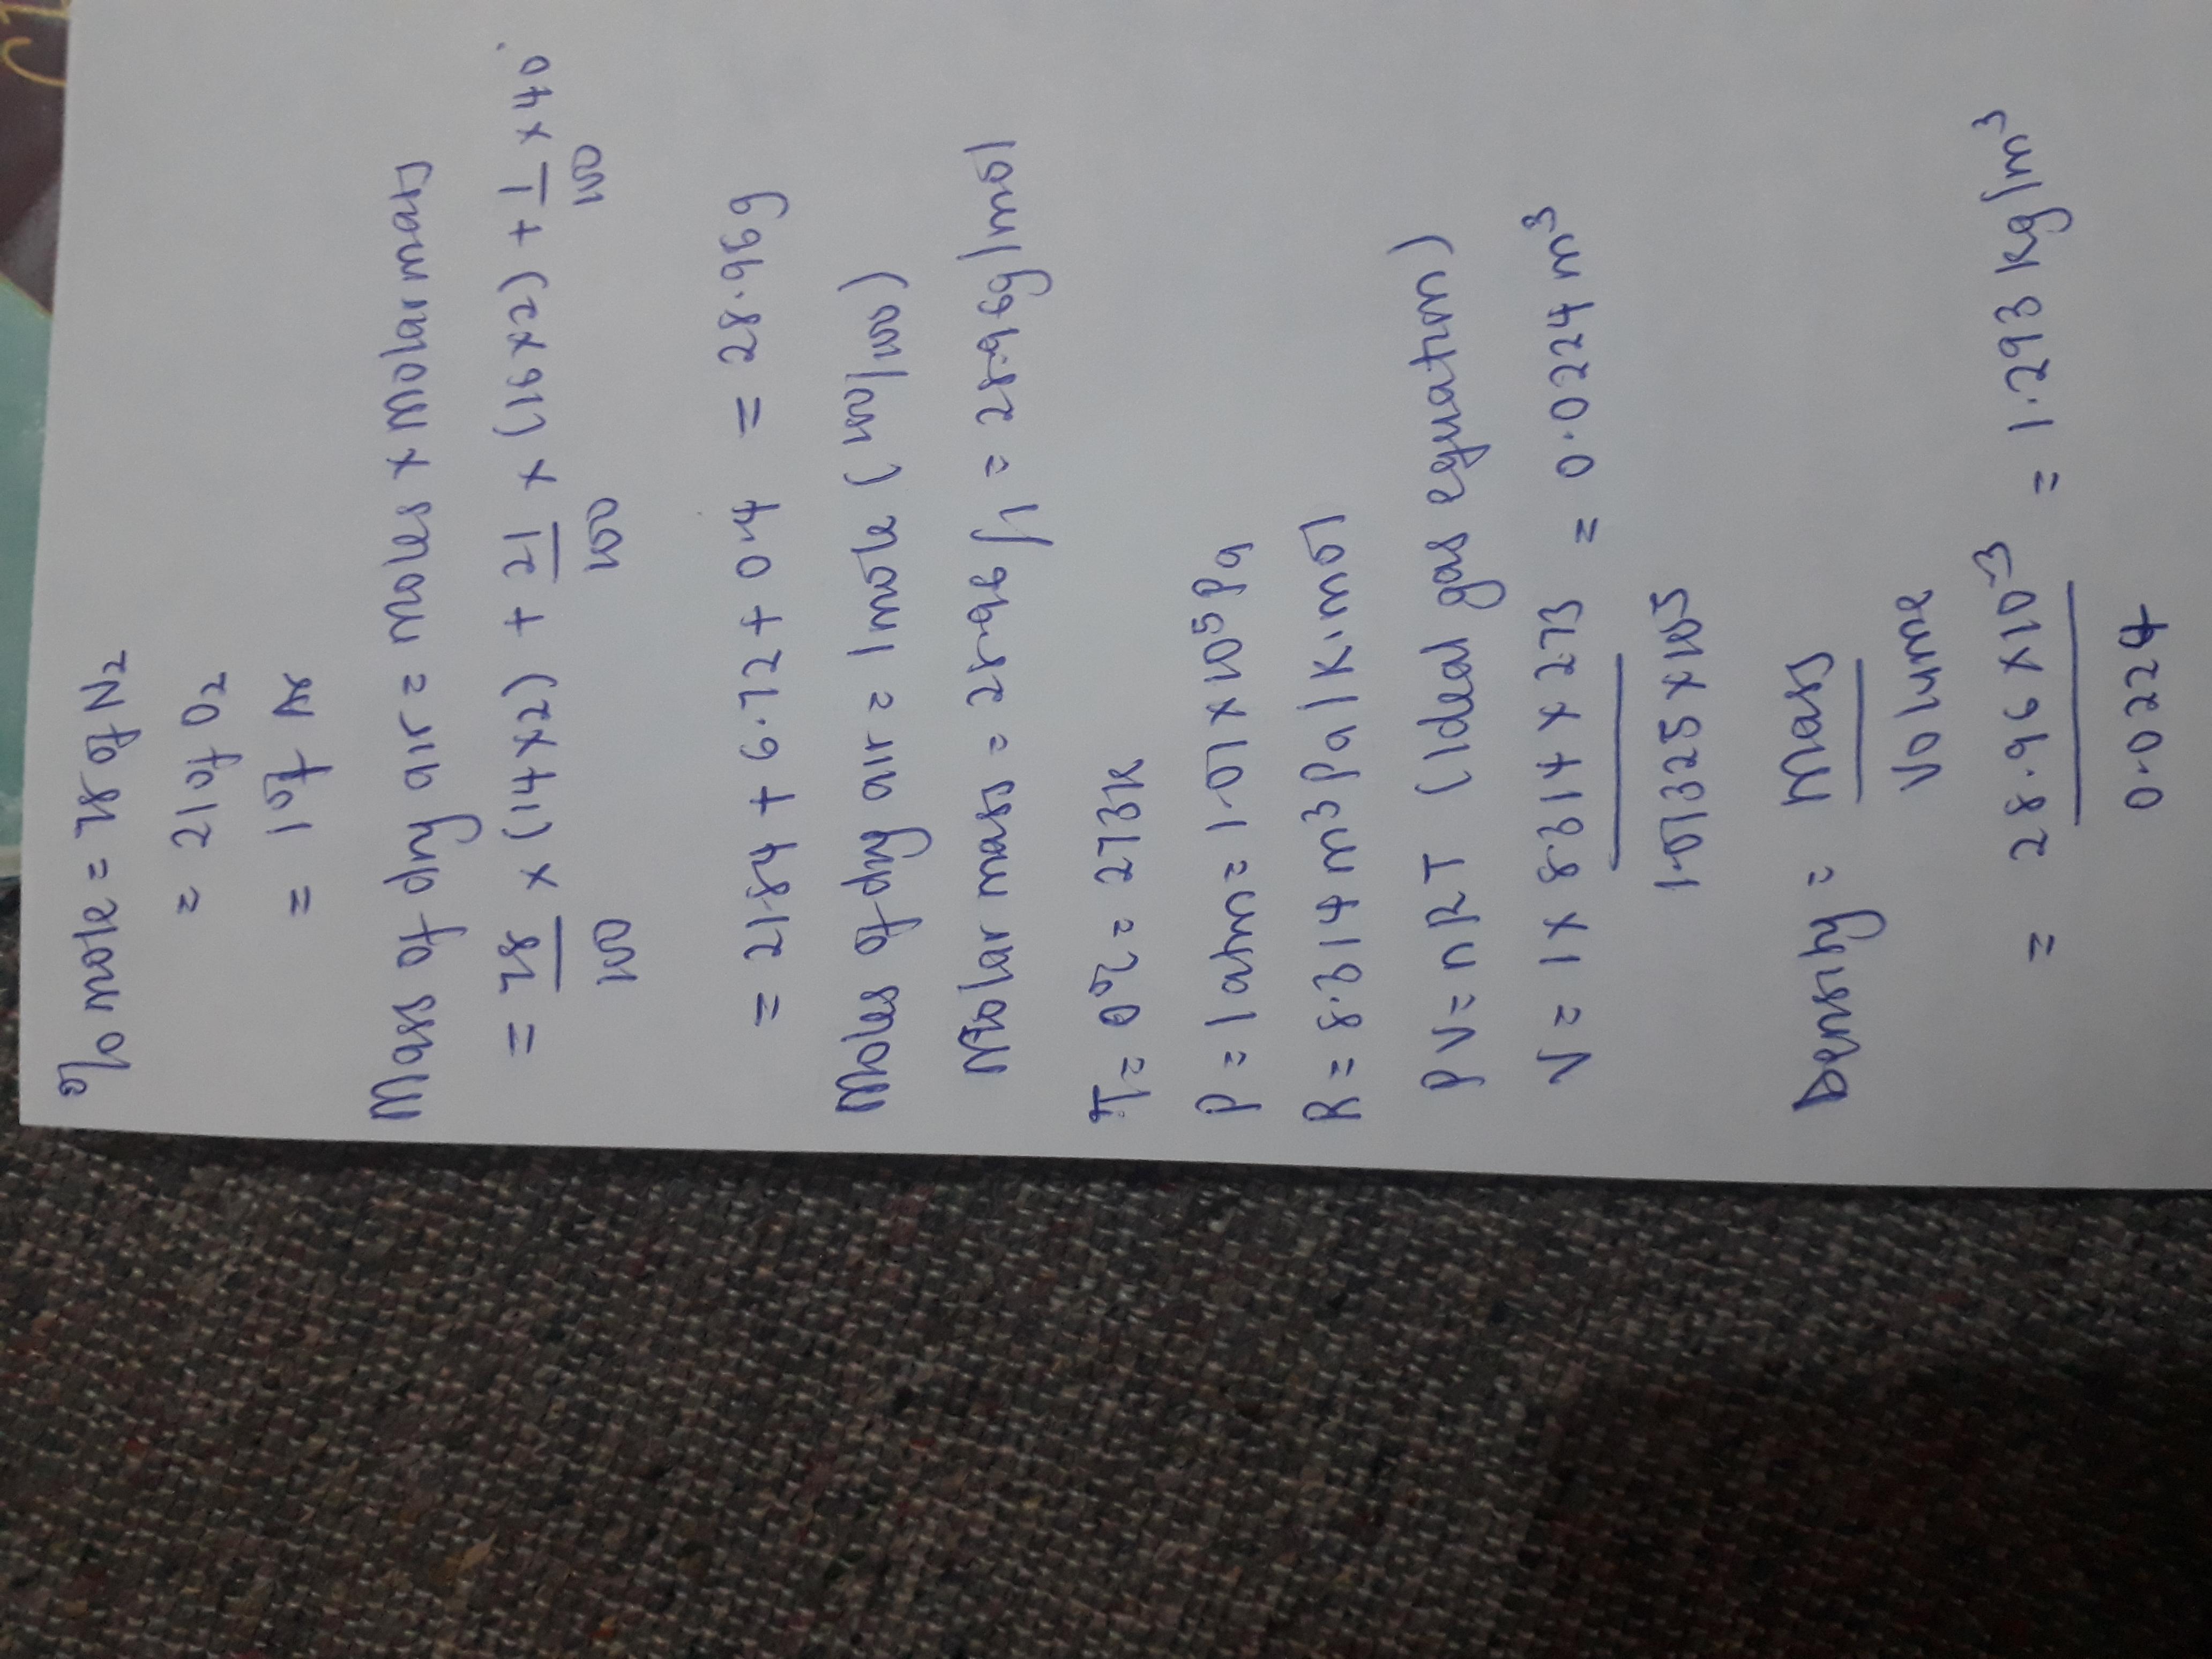 % mole = 78 of N2
= 21 of O2
= 1 of Ar
Mass of dry air = moles x Molar mass
= 78/100 x (14x2) + 21/100 x (16x2) + 1/100 x 40.
= 21.84 + 6.72 + 0.4 = 28.96g
Moles of dry air = 1 mole (100/100)
Molar mass = 28.96/1 = 28.96g/mol
T = 0°C = 273K
P = 1 atm = 1.01 x 10^5 Pa
R = 8.314 m^3 Pa/K.mol
PV = nRT (Ideal gas equation)
V = 1 x 8.314 x 273 / 1.01325 x 10^5 = 0.0224 m^3
Density = Mass / Volume
= 28.96 x 10^-3 / 0.0224 = 1.293 Kg/m^3